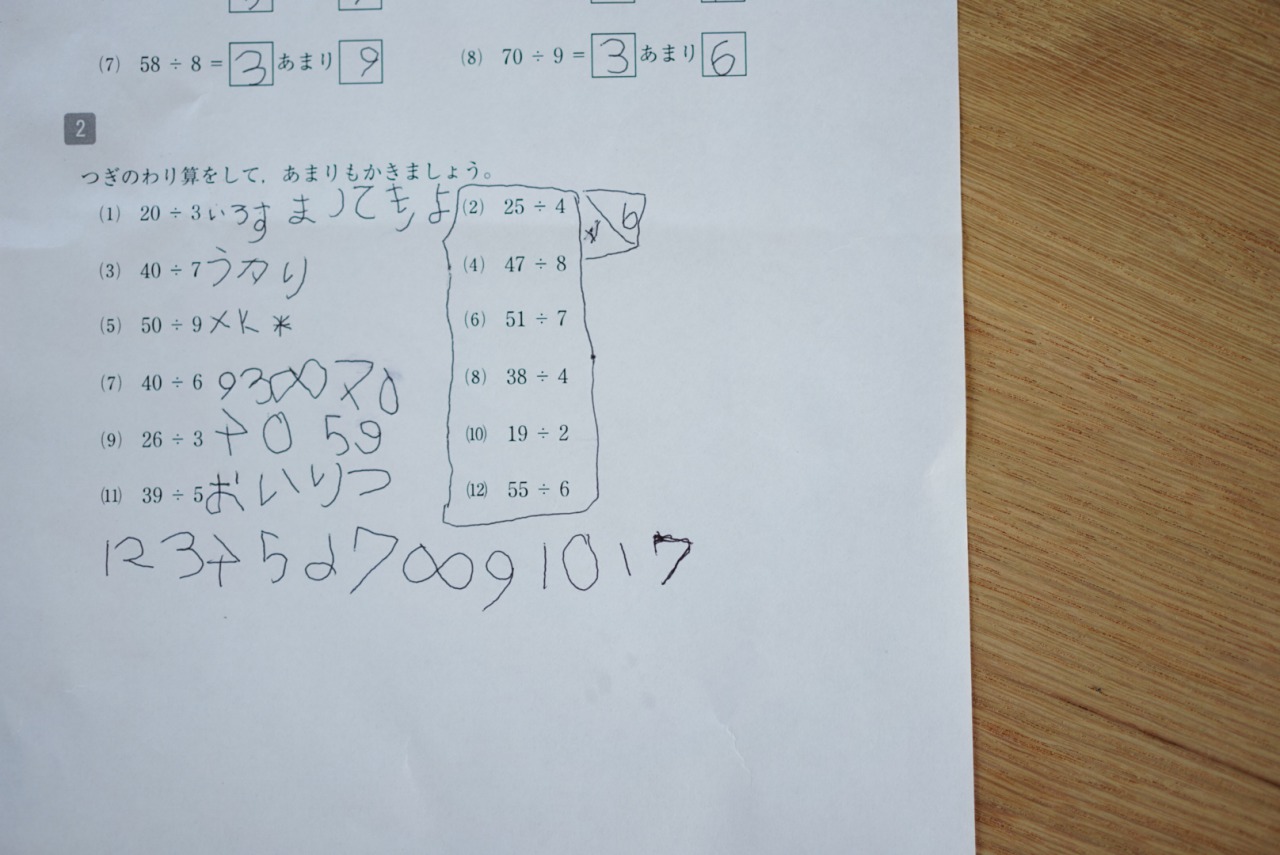 (7) 58 ÷ 8 = 3 あまり 9 (8) 70 ÷ 9 = 3 あまり 6
2
つぎのわり算をして、あまりもかきましょう。
(1) 20 ÷ 3 いろす まつてもよ (2) 25 ÷ 4 6
(3) 40 ÷ 7 うかり (4) 47 ÷ 8
(5) 50 ÷ 9 (6) 51 ÷ 7
(7) 40 ÷ 6 938 70 (8) 38 ÷ 4
(9) 26 ÷ 3 4 0 59 (10) 19 ÷ 2
(11) 39 ÷ 5 おいりつ (12) 55 ÷ 6
12345678910 17